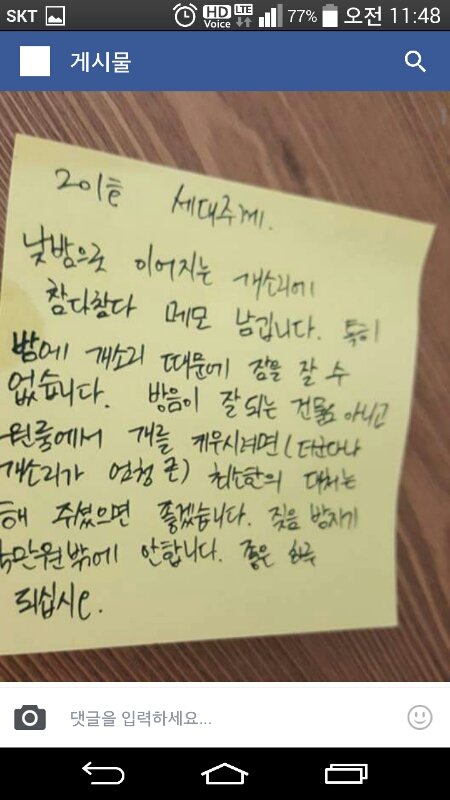 SKT HD Voice LTE 77% 오전 11:48
게시물
201호 세대주께.
낮밤으로 이어지는 개소리에
참다참다 메모 남깁니다. 특히
밤에 개소리 때문에 잠을 잘 수
없습니다. 방음이 잘 되는 건물도 아니고
원룸에서 개를 키우시려면 (더군다나
개소리가 엄청 큰) 최소한의 대처는
해 주셨으면 좋겠습니다. 짖음 방지기
만원밖에 안합니다. 좋은 하루
되십시오.
댓글을 입력하세요...